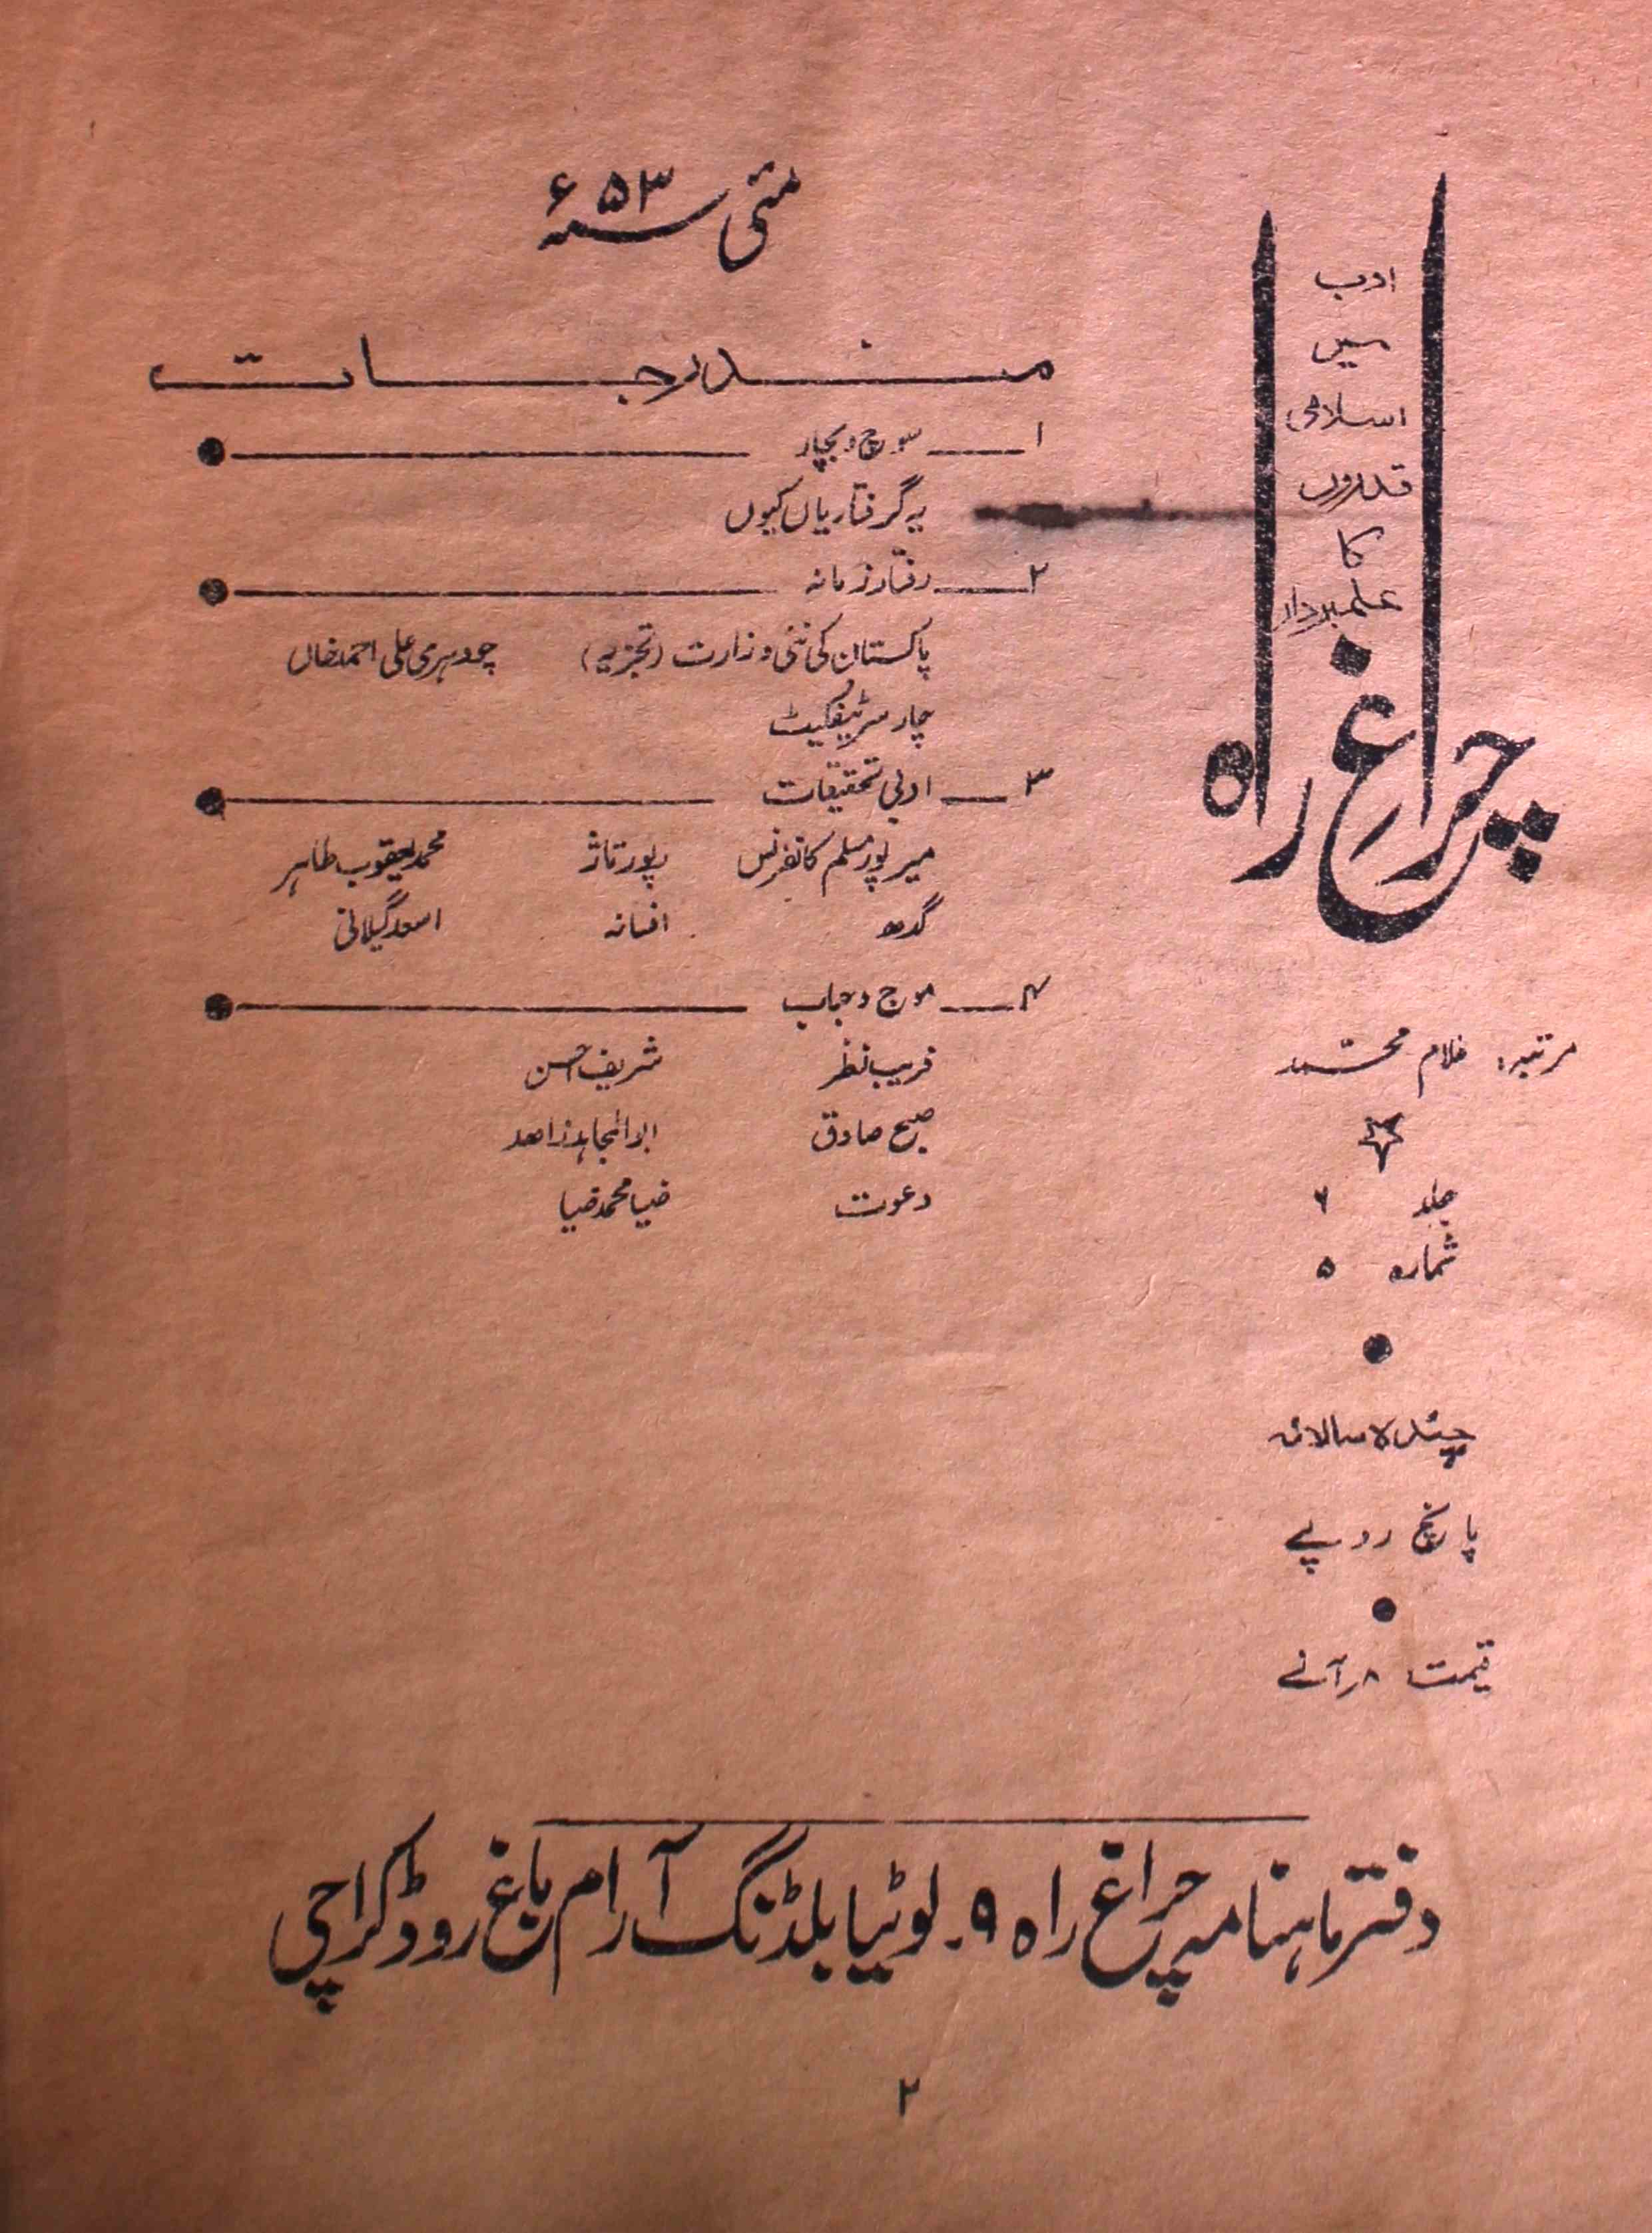 ادب
میں
اسلامی
قدروں
کا
علمبردار
چراغ راہ
مرتبہ: غلام محمّد
جلد ۶
شمارہ ۵
چندہ سالانہ
پانچ روپے
قیمت ۸ر آنے
مئی سنہ ۵۳ء
مندرجات
۱ سوچ و بچار
یہ گرفتاریاں کیوں
۲ رفتار زمانہ
پاکستان کی نئی وزارت (تجزیہ) چودہری علی احمد خاں
چار سرٹیفکیٹ
۳ ادبی تحقیقات
میرپور مسلم کانفرنس رپورتاژ محمد یعقوب طاہر
گدھ افسانہ اسعد گیلانی
۴ موج و حباب
فریب نظر شریف احسن
صبح صادق ابوالمجاہد زاہد
دعوت ضیا محمد ضیا
دفتر ماہنامہ چراغ راہ ۹۔ لوٹیا بلڈنگ آرام باغ روڈ کراچی
۲